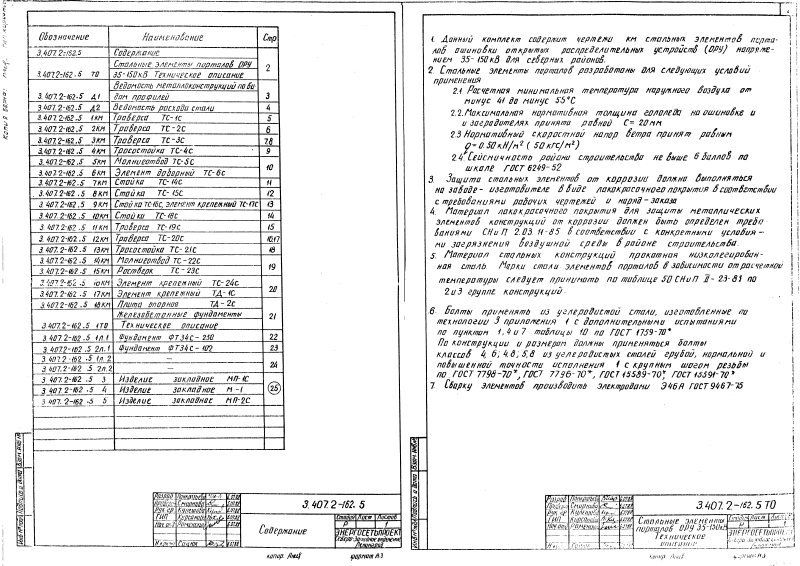 Обозначение Наименование Стр
3.407.2-162.5 Содержание
Стальные элементы порталов ОРУ 2
3.407.2-162.5 ТО 35-150кВ Техническое описание
Ведомость металлоконструкций по ви-
3.407.2-162.5 Д1 дам профилей 3
3.407.2-162.5 Д2 Ведомость расхода стали 4
3.407.2-162.5 1КМ Траверса ТС-1С 5
3.407.2-162.5 2КМ Траверса ТС-2С 6
3.407.2-162.5 3КМ Траверса ТС-3С 7,8
3.407.2-162.5 4КМ Тросостойка ТС-4С 9
3.407.2-162.5 5КМ Молниеотвод ТС-5С 10
3.407.2-162.5 6КМ Элемент доборный ТС-6С
3.407.2-162.5 7КМ Стойка ТС-14С 11
3.407.2-162.5 8КМ Стойка ТС-15С 12
3.407.2-162.5 9КМ Стойка ТС-16С, элемент крепежный ТС-17С 13
3.407.2-162.5 10КМ Стойка ТС-18С 14
3.407.2-162.5 11КМ Траверса ТС-19С 15
3.407.2-162.5 12КМ Траверса ТС-20С 16,17
3.407.2-162.5 13КМ Тросостойка ТС-21С 18
3.407.2-162.5 14КМ Молниеотвод ТС-22С 19
3.407.2-162.5 15КМ Ростверк ТС-23С
3.407.2-162.5 16КМ Элемент крепежный ТС-24С 20
3.407.2-162.5 17КМ Элемент крепежный ТД-1С
3.407.2-162.5 18КМ Плита опорная ТД-2С
Железобетонные фундаменты 21
3.407.2-162.5 1ТО Техническое описание
3.407.2-162.5 1Л.1 Фундамент ФТ34С-250 22
3.407.2-162.5 2Л.1 Фундамент ФТ34С-102 23
3.407.2-162.5 1Л.2 — 24
3.407.2-162.5 2Л.2 —
3.407.2-162.5 3 Изделие закладное МП-1С 25
3.407.2-162.5 4 Изделие закладное М-1
3.407.2-162.5 5 Изделие закладное МП-2С
3.407.2-162.5
Содержание
Стадия Лист Листов
Р 1
ЭНЕРГОСЕТЬПРОЕКТ
Северо-Западное отделение
Ленинград
копир. формат А3
1. Данный комплект содержит чертежи км стальных элементов порта-
лов ошиновки открытых распределительных устройств (ОРУ) напряже-
нием 35-150кВ для северных районов.
2. Стальные элементы порталов разработаны для следующих условий
применения
2.1 Расчетная минимальная температура наружного воздуха от
минус 41 до минус 55°С
2.2. Максимальная нормативная толщина гололеда на ошиновке и
и заградителях принята равной С=20мм
2.3 Нормативный скоростной напор ветра принят равным
q=0.50кН/м² (50кгс/м²)
2.4 Сейсмичность района строительства не выше 6 баллов по
шкале ГОСТ 6249-52
3. Защита стальных элементов от коррозии должна выполняться
на заводе-изготовителе в виде лакокрасочного покрытия в соответствии
с требованиями рабочих чертежей и наряд-заказа
4. Материал лакокрасочного покрытия для защиты металлических
элементов конструкций от коррозии должен быть определен требо-
ваниями СНиП 2.03.11-85 в соответствии с конкретными условия-
ми загрязнения воздушной среды в районе строительства.
5. Материал стальных конструкций прокатная низколегирован-
ная сталь. Марки стали элементов порталов в зависимости от расчетной
температуры следует принимать по таблице 50 СНиП II-23-81 по
2 и 3 группе конструкций
6. Болты применять из углеродистой стали, изготовленные по
технологии 3 приложения 1 с дополнительными испытаниями
по пунктам 1, 4 и 7 таблицы 10 по ГОСТ 1759-70*
По конструкции и размерам должны применяться болты
классов 4,6; 4,8; 5,8 из углеродистых сталей грубой, нормальной и
повышенной точности исполнения 1 с крупным шагом резьбы
по ГОСТ 7798-70*, ГОСТ 7796-70*, ГОСТ 15589-70*, ГОСТ 15591-70*
7. Сварку элементов производить электродами Э46А ГОСТ 9467-75
3.407.2-162.5 ТО
Стальные элементы
порталов ОРУ 35-150кВ
Техническое
описание
Р 1
ЭНЕРГОСЕТЬПРОЕКТ
копир. формат А3